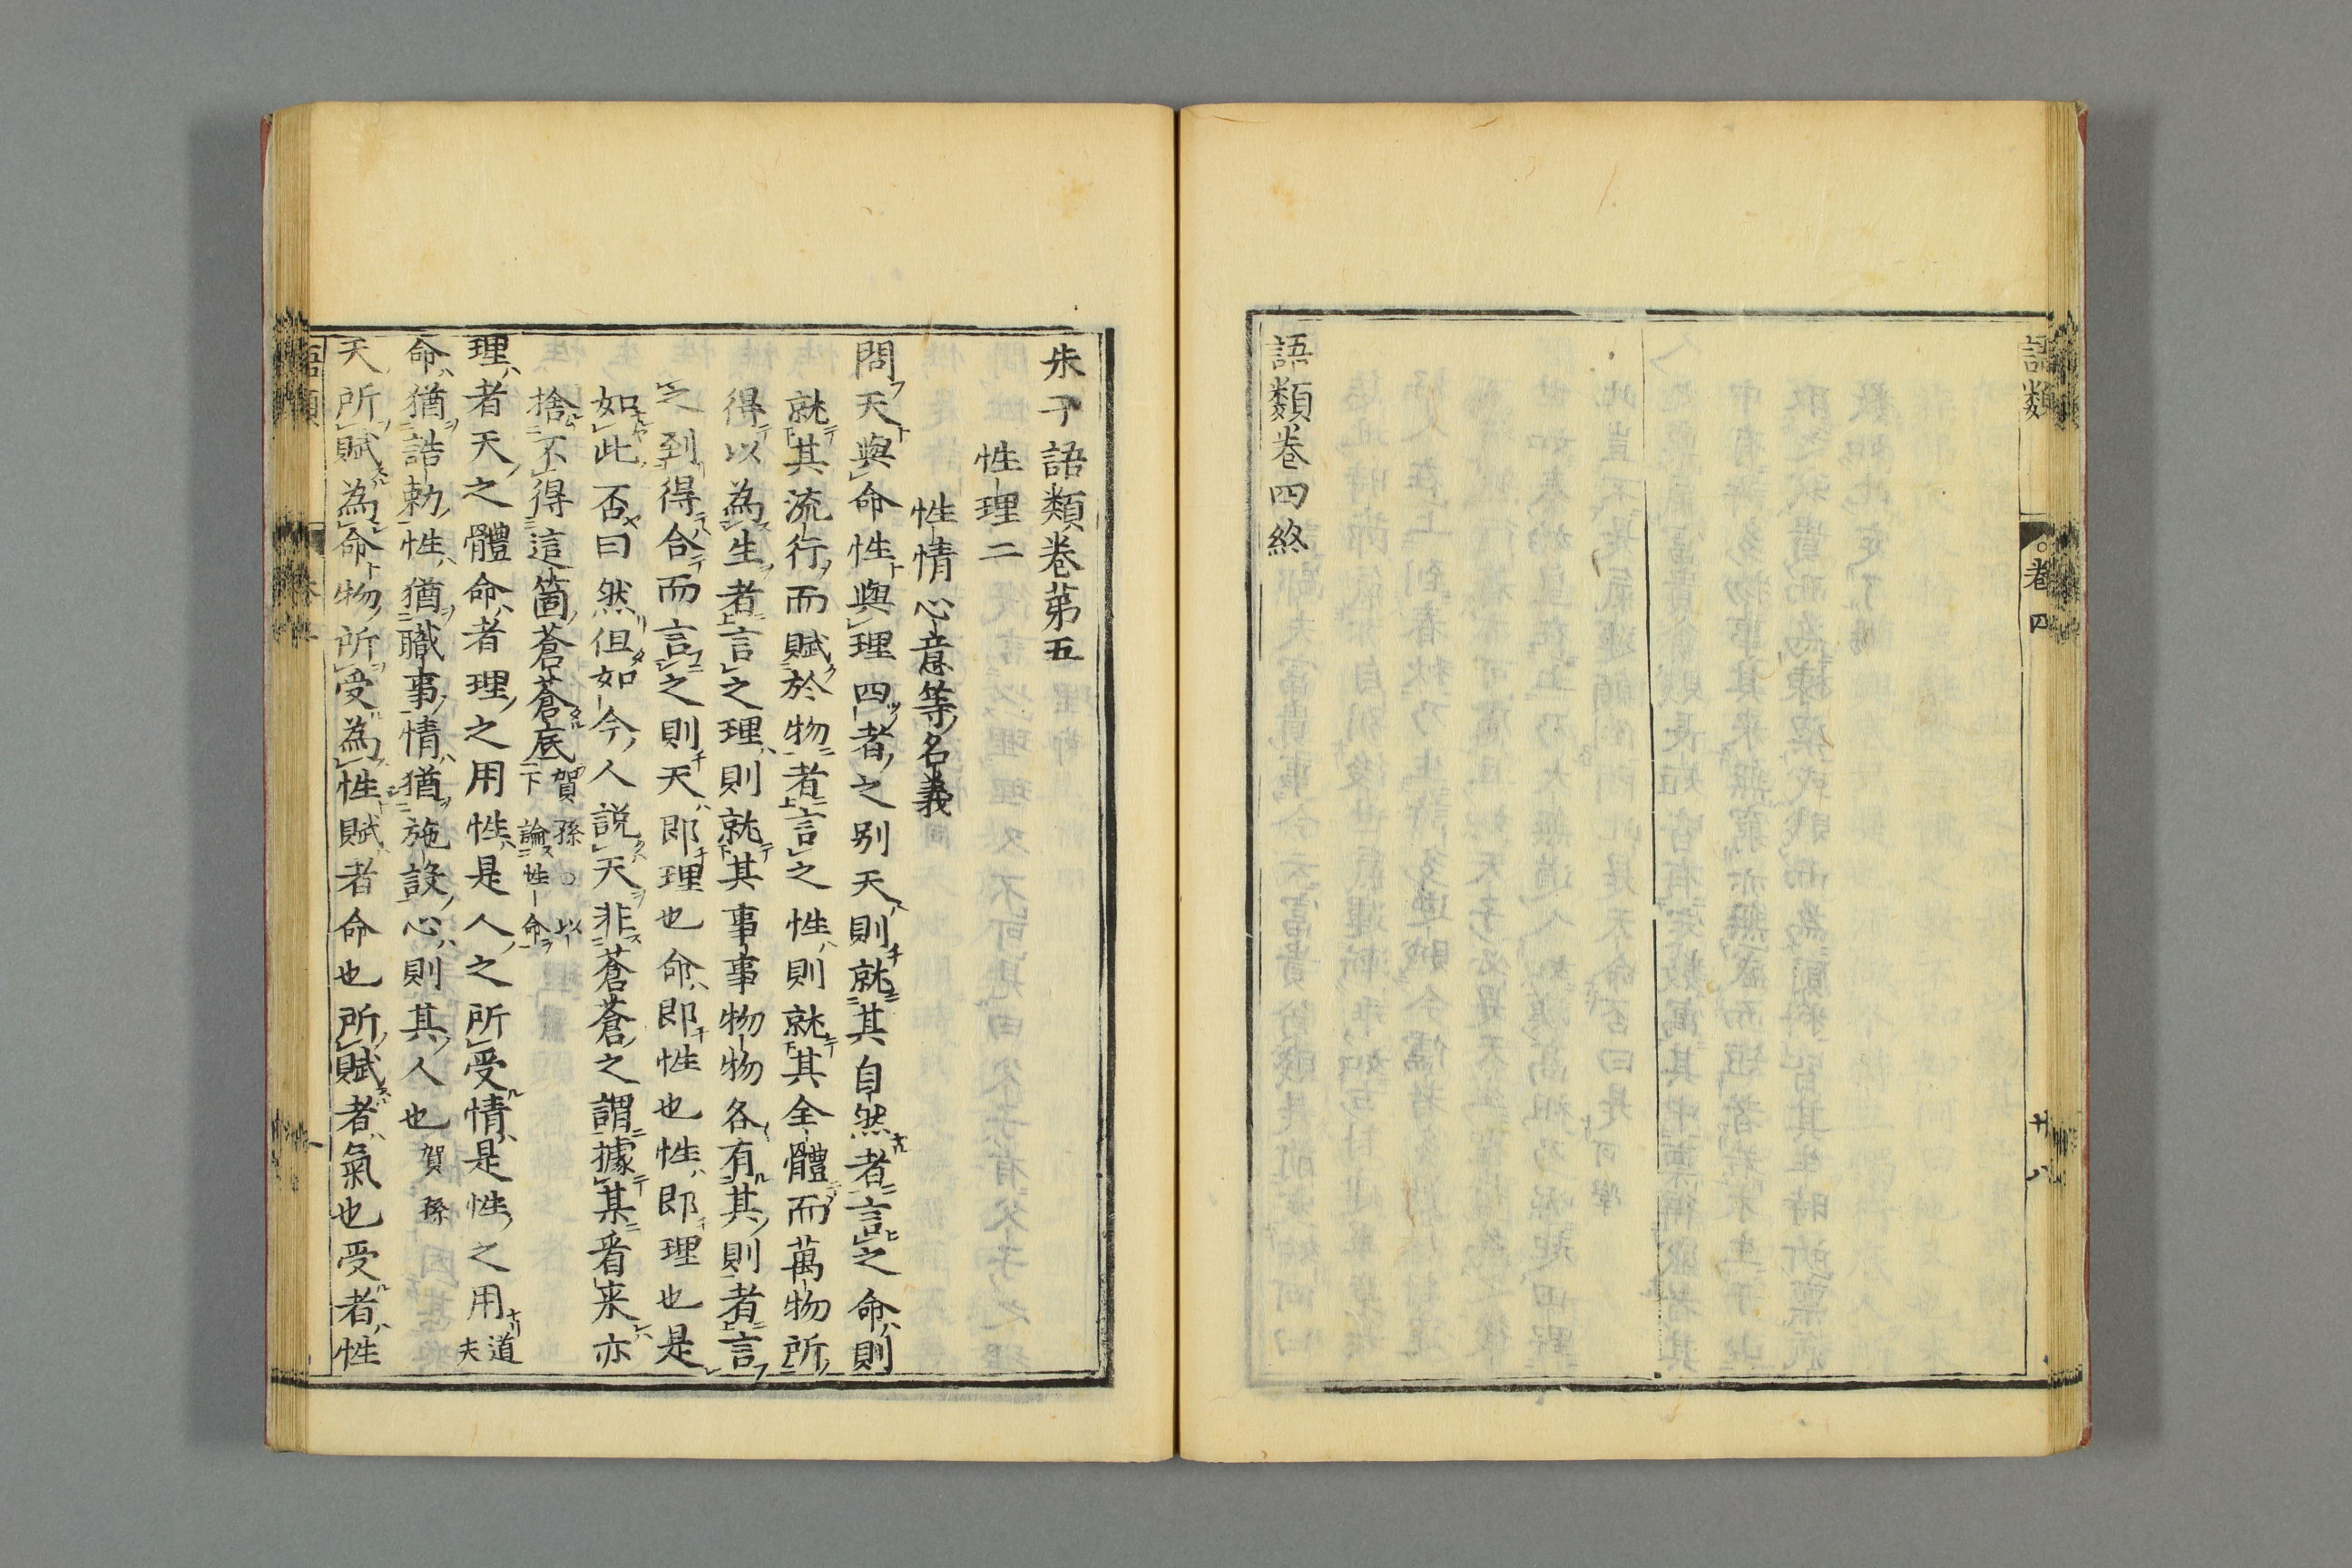 語類
卷四
廿八
語類卷四終
朱子語類卷第五
性理二
性情心意等名義
問天與命性與理四者之別天則就其自然者言之命則
就其流行而賦於物者言之性則就其全體而萬物所
得以為生者言之理則就其事事物物各有其則者言
之到得合而言之則天即理也命即性也性即理也是
如此否曰然但如今人說天非蒼蒼之謂據某看来亦
捨不得這箇蒼蒼底賀孫○以下論性命
理者天之體命者理之用性是人之所受情是性之用道夫
命猶誥勅性猶職事情猶施設心則其人也賀孫
天所賦為命物所受為性賦者命也所賦者氣也受者性